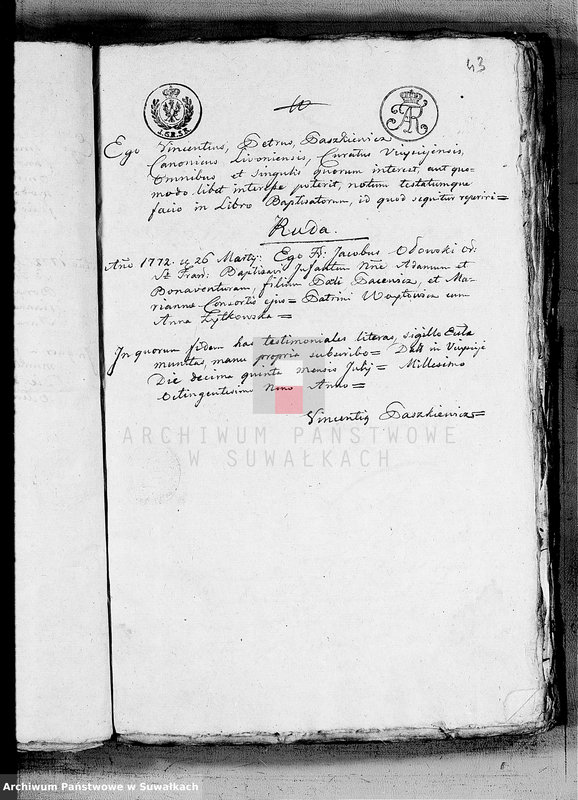 43
Ego Vincentius, Petrus, Paszkiewicz
Canonicus Livoniensis, Curatus
Omnibus et Singulis quorum interest, aut quo-
modo libet interesse poterit, notum testatumque
facio in Libro Baptisatorum, id quod sequitur reperiri=
Ruda.
Año 1772. 26 Martij: Ego Fr: Jacobus Odowski Or:
St Fran: Baptisavi Infantem Nñe Adamum et
Bonaventuram, filium et Ma-
rianna Consortis ejus= Patrini cum
Anna Zytkowska=
In quorum fidem has testimoniales literas, sigillo Eccla
munitas, manu propria subscribo= Dat in
Die decima quinta mensis Julij= Millesimo
Octingentesimo Nono Anno=
Vincentiq Paszkiewicz=
AR
ARCHIWUM PAŃSTWOWE
W SUWAŁKACH
Archiwum Państwowe w Suwałkach